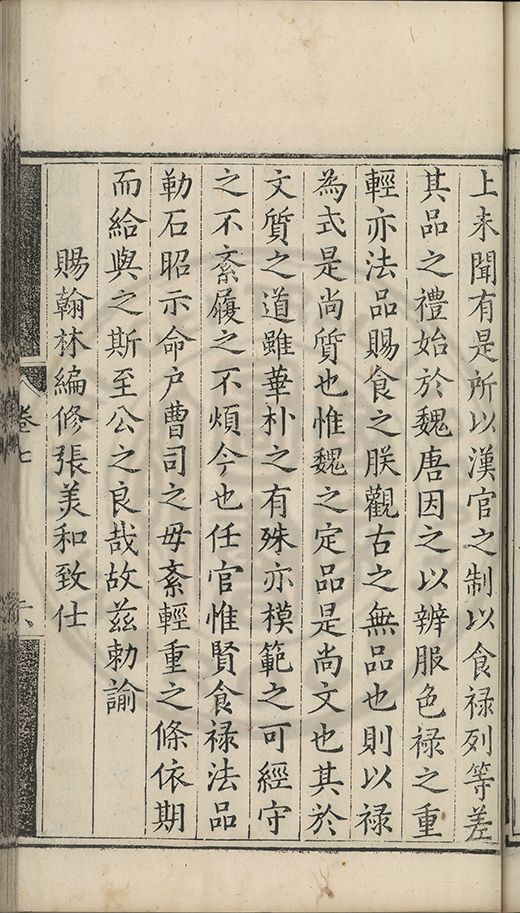 上未聞有是所以漢官之制以食禄列等差
其品之禮始於魏唐因之以辨服色禄之重
輕亦法品賜食之朕觀古之無品也則以禄
為式是尚質也惟魏之定品是尚文也其於
文質之道雖華朴之有殊亦模範之可經守
之不紊履之不煩今也任官惟賢食禄法品
勒石昭示命户曹司之毋紊輕重之條依期
而給與之斯至公之良哉故茲勅諭
賜翰林編修張美和致仕
卷七
六